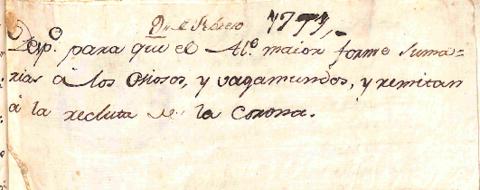 1773,,
Desp.º para que el Al.e maior forme suma-
rias â los Osiosos, y vagamundos, y remitan
â la recluta de la Corona.